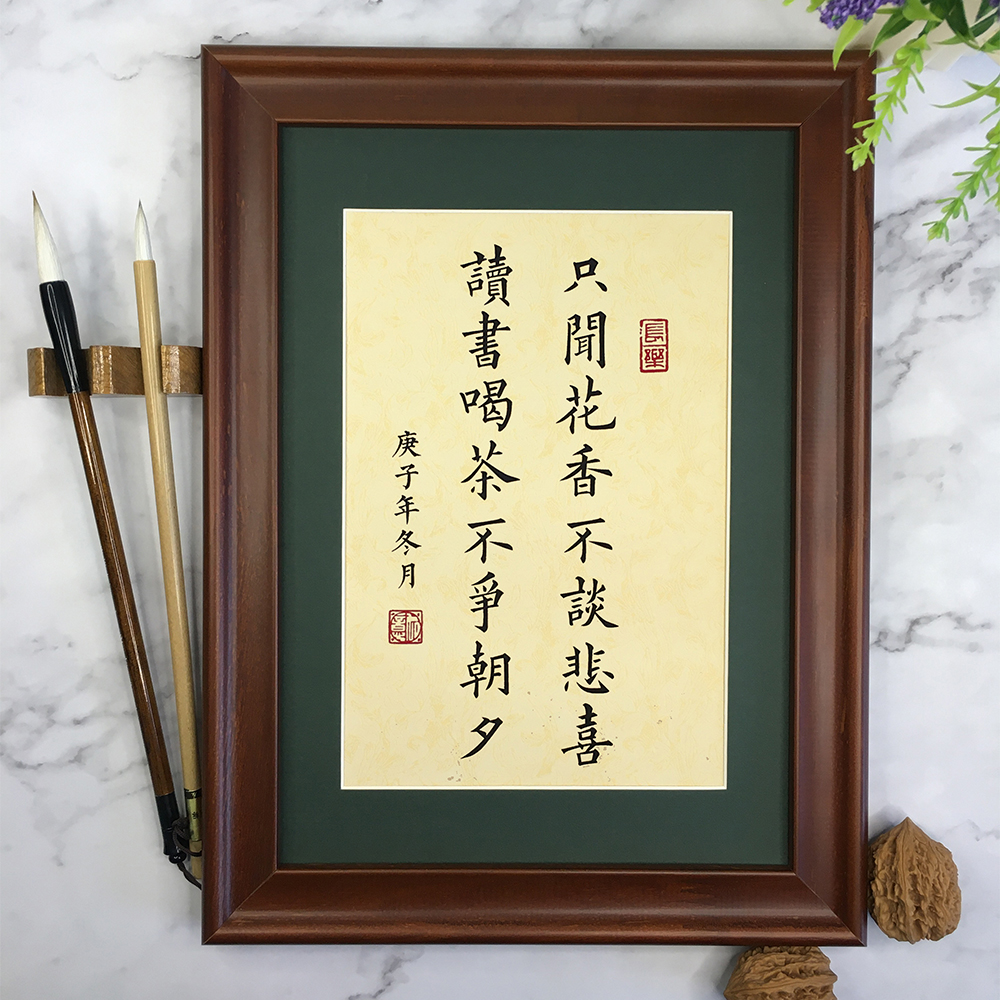 只聞花香不談悲喜
讀書喝茶不爭朝夕
庚子年冬月
長樂